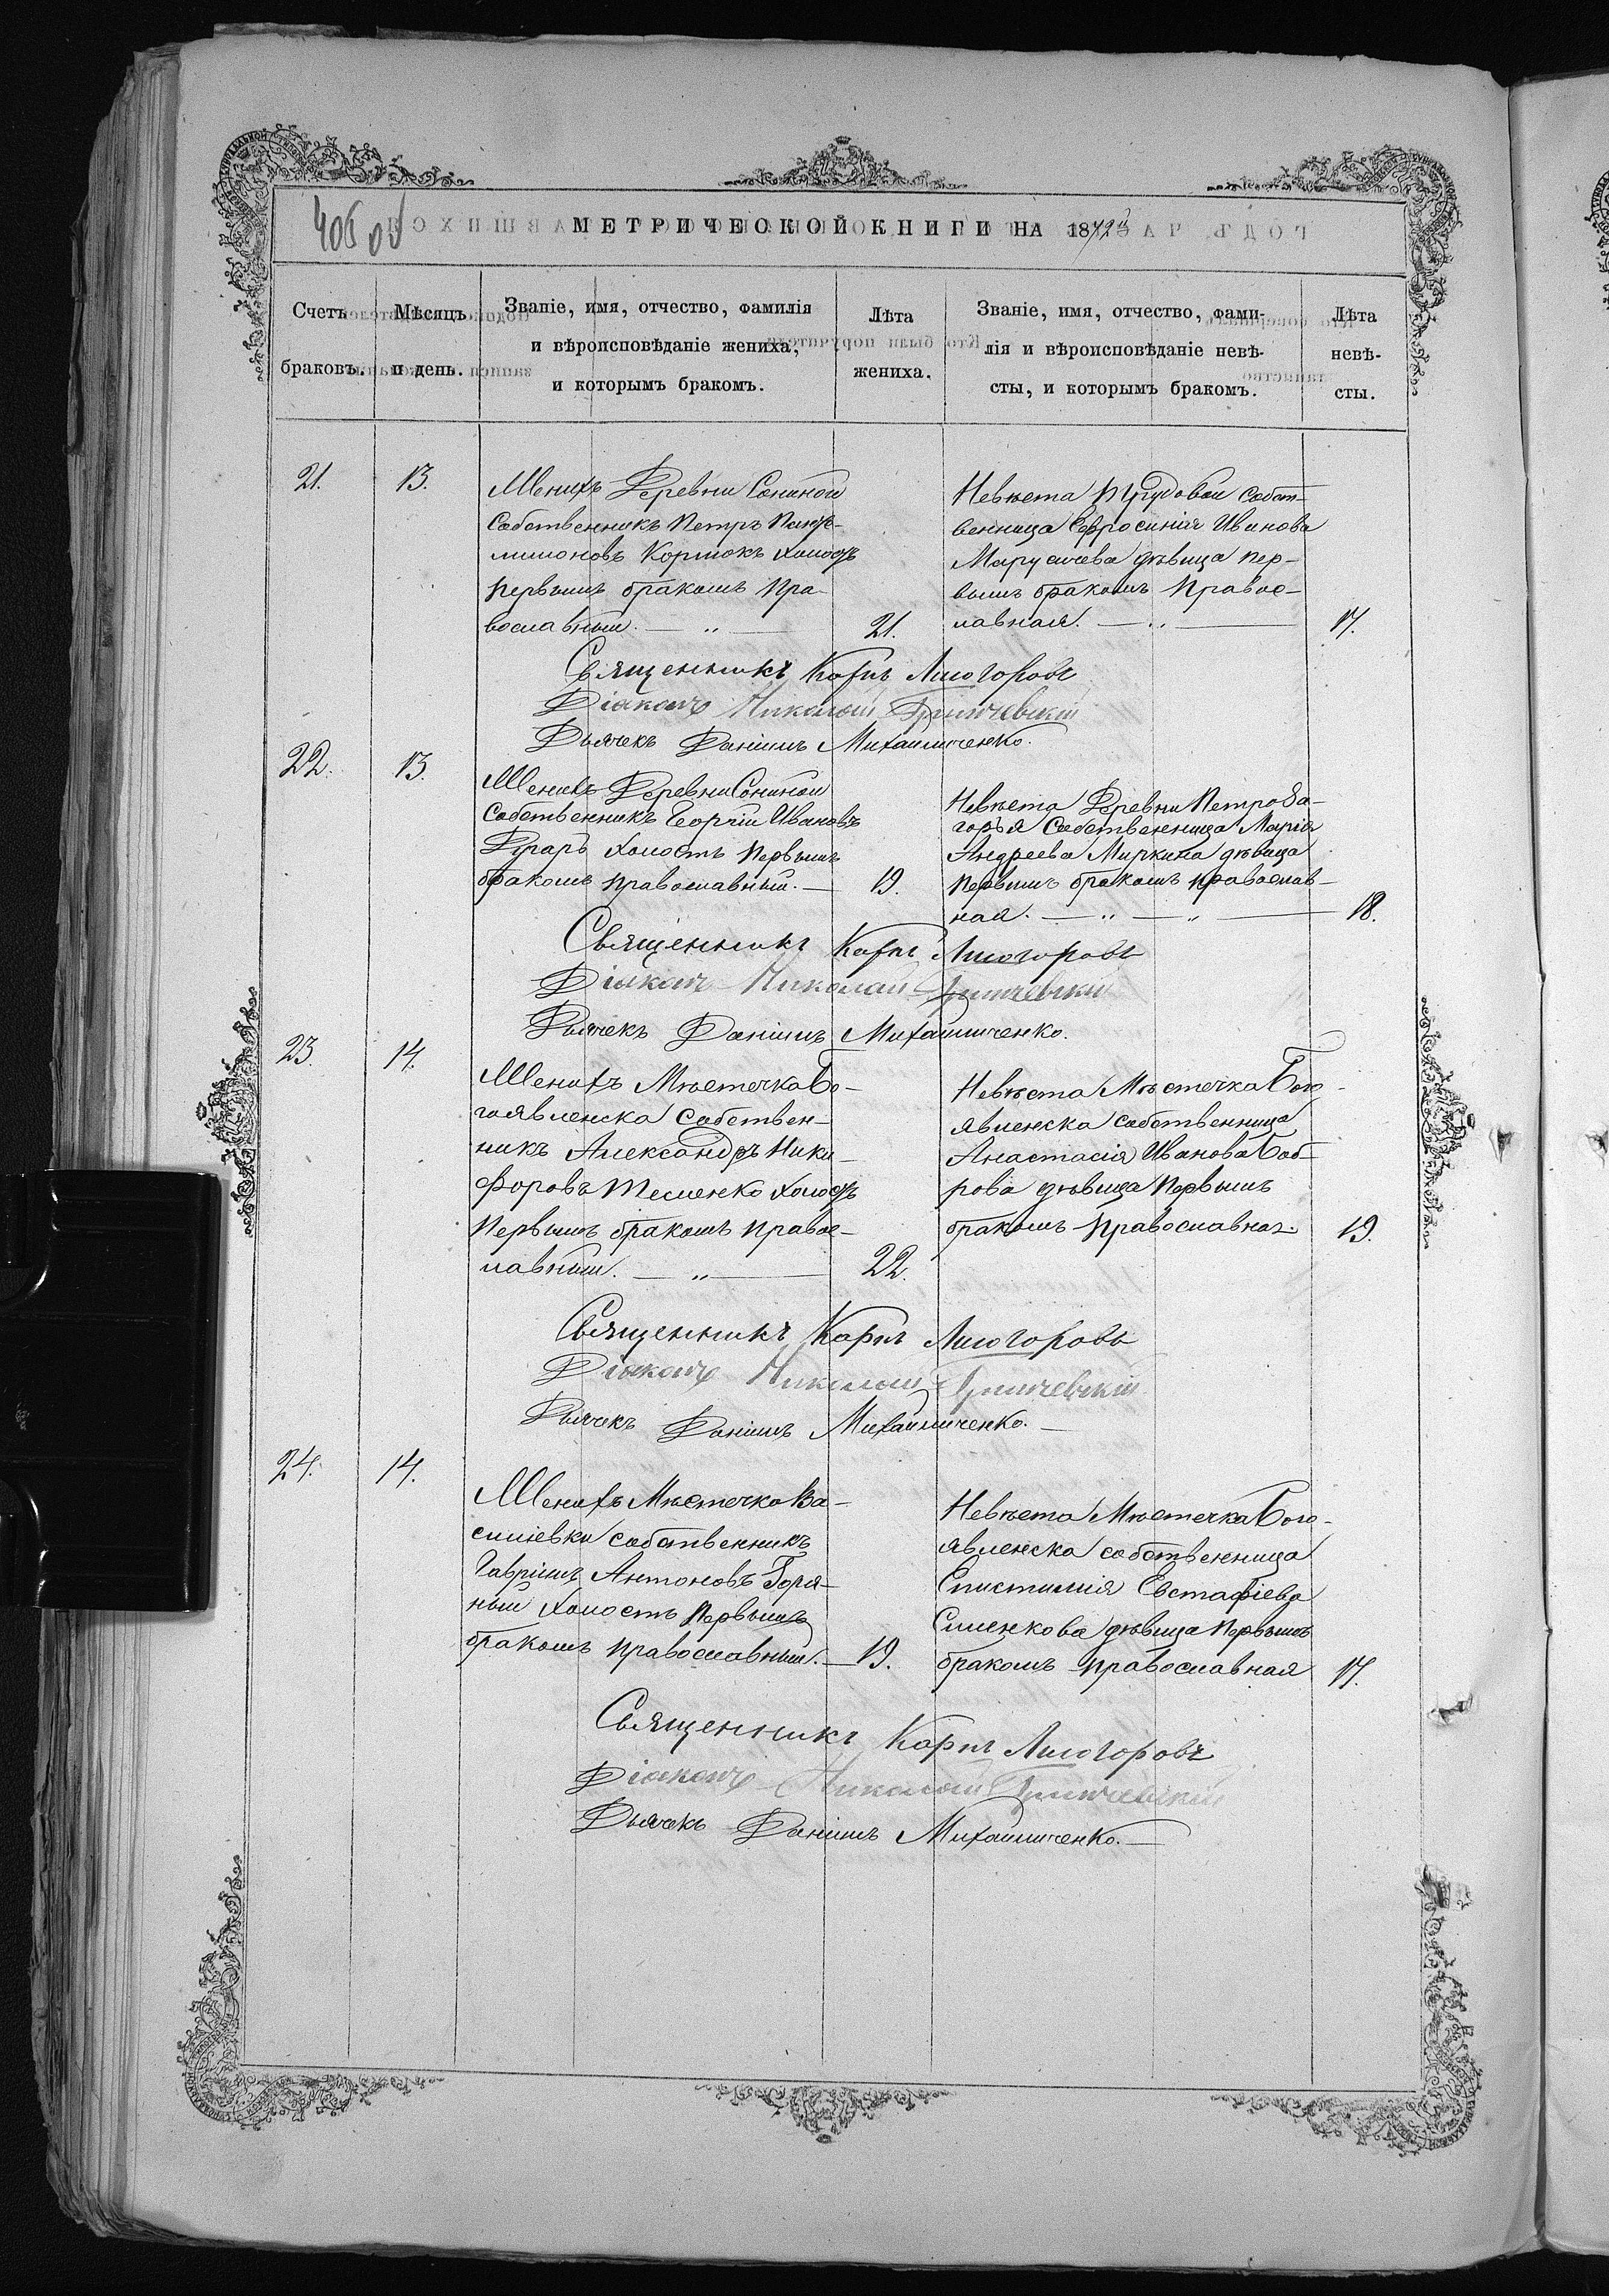 405 об
МЕТРИЧЕСКОЙ КНИГИ НА 1872й
Счетъ браковъ.
Мѣсяцъ и день.
Званіе, имя, отчество, фамилія
и вѣроисповѣданіе жениха,
и которымъ бракомъ.
Лѣта
жениха.
Званіе, имя, отчество, фами-
лія и вѣроисповѣданіе невѣ-
сты, и которымъ бракомъ.
Лѣта
невѣ-
сты.
21.
13.
Женихъ Деревни Сониной
Собственникъ Петръ Панте-
лимоновъ Кормокъ холостъ
первымъ бракомъ пра-
вославный. — „ —
21.
Невѣста Трудовой собст-
венница Евфросинія Иванова
Марусичева дѣвица пер-
вымъ бракомъ Правос-
лавная. — „ —
17.
Священникъ Карпъ Лисогоровъ
Діаконъ Николай
Дьячекъ Даніилъ Михайличенко.
22.
13.
Женихъ Деревни Сониной
Собственникъ Георгій Ивановъ
холостъ первымъ
бракомъ православный. —
19.
Невѣста Деревни Петроза-
горья Собственница Марія
Андреева Миркина дѣвица
первымъ бракомъ православ-
ная. — „ — „ —
18.
Священникъ Карпъ Лисогоровъ
Діаконъ Николай
Дьячекъ Даніилъ Михайличенко.
23.
14.
Женихъ Мѣстечка Бо-
гоявленска Собствен-
никъ Александръ Ники-
форовъ Тесленко холостъ
Первымъ бракомъ правос-
лавный. — „ —
22.
Невѣста Мѣстечка Бого-
явленска собственница
Анастасія Иванова Боб-
рова дѣвица Первымъ
бракомъ Православная.
19.
Священникъ Карпъ Лисогоровъ
Діаконъ Николай
Дьячекъ Даніилъ Михайличенко. —
24.
14.
Женихъ Мѣстечка Ва-
силіевки собственникъ
Гавріилъ Антоновъ Горя-
ный холостъ Первымъ
бракомъ православный. —
19.
Невѣста Мѣстечка Бого-
явленска собственница
Епистимія Евстафіева
Сименкова дѣвица Первымъ
бракомъ православная
17.
Священникъ Карпъ Лисогоровъ
Діаконъ Николай
Дьячекъ Даніилъ Михайличенко. —